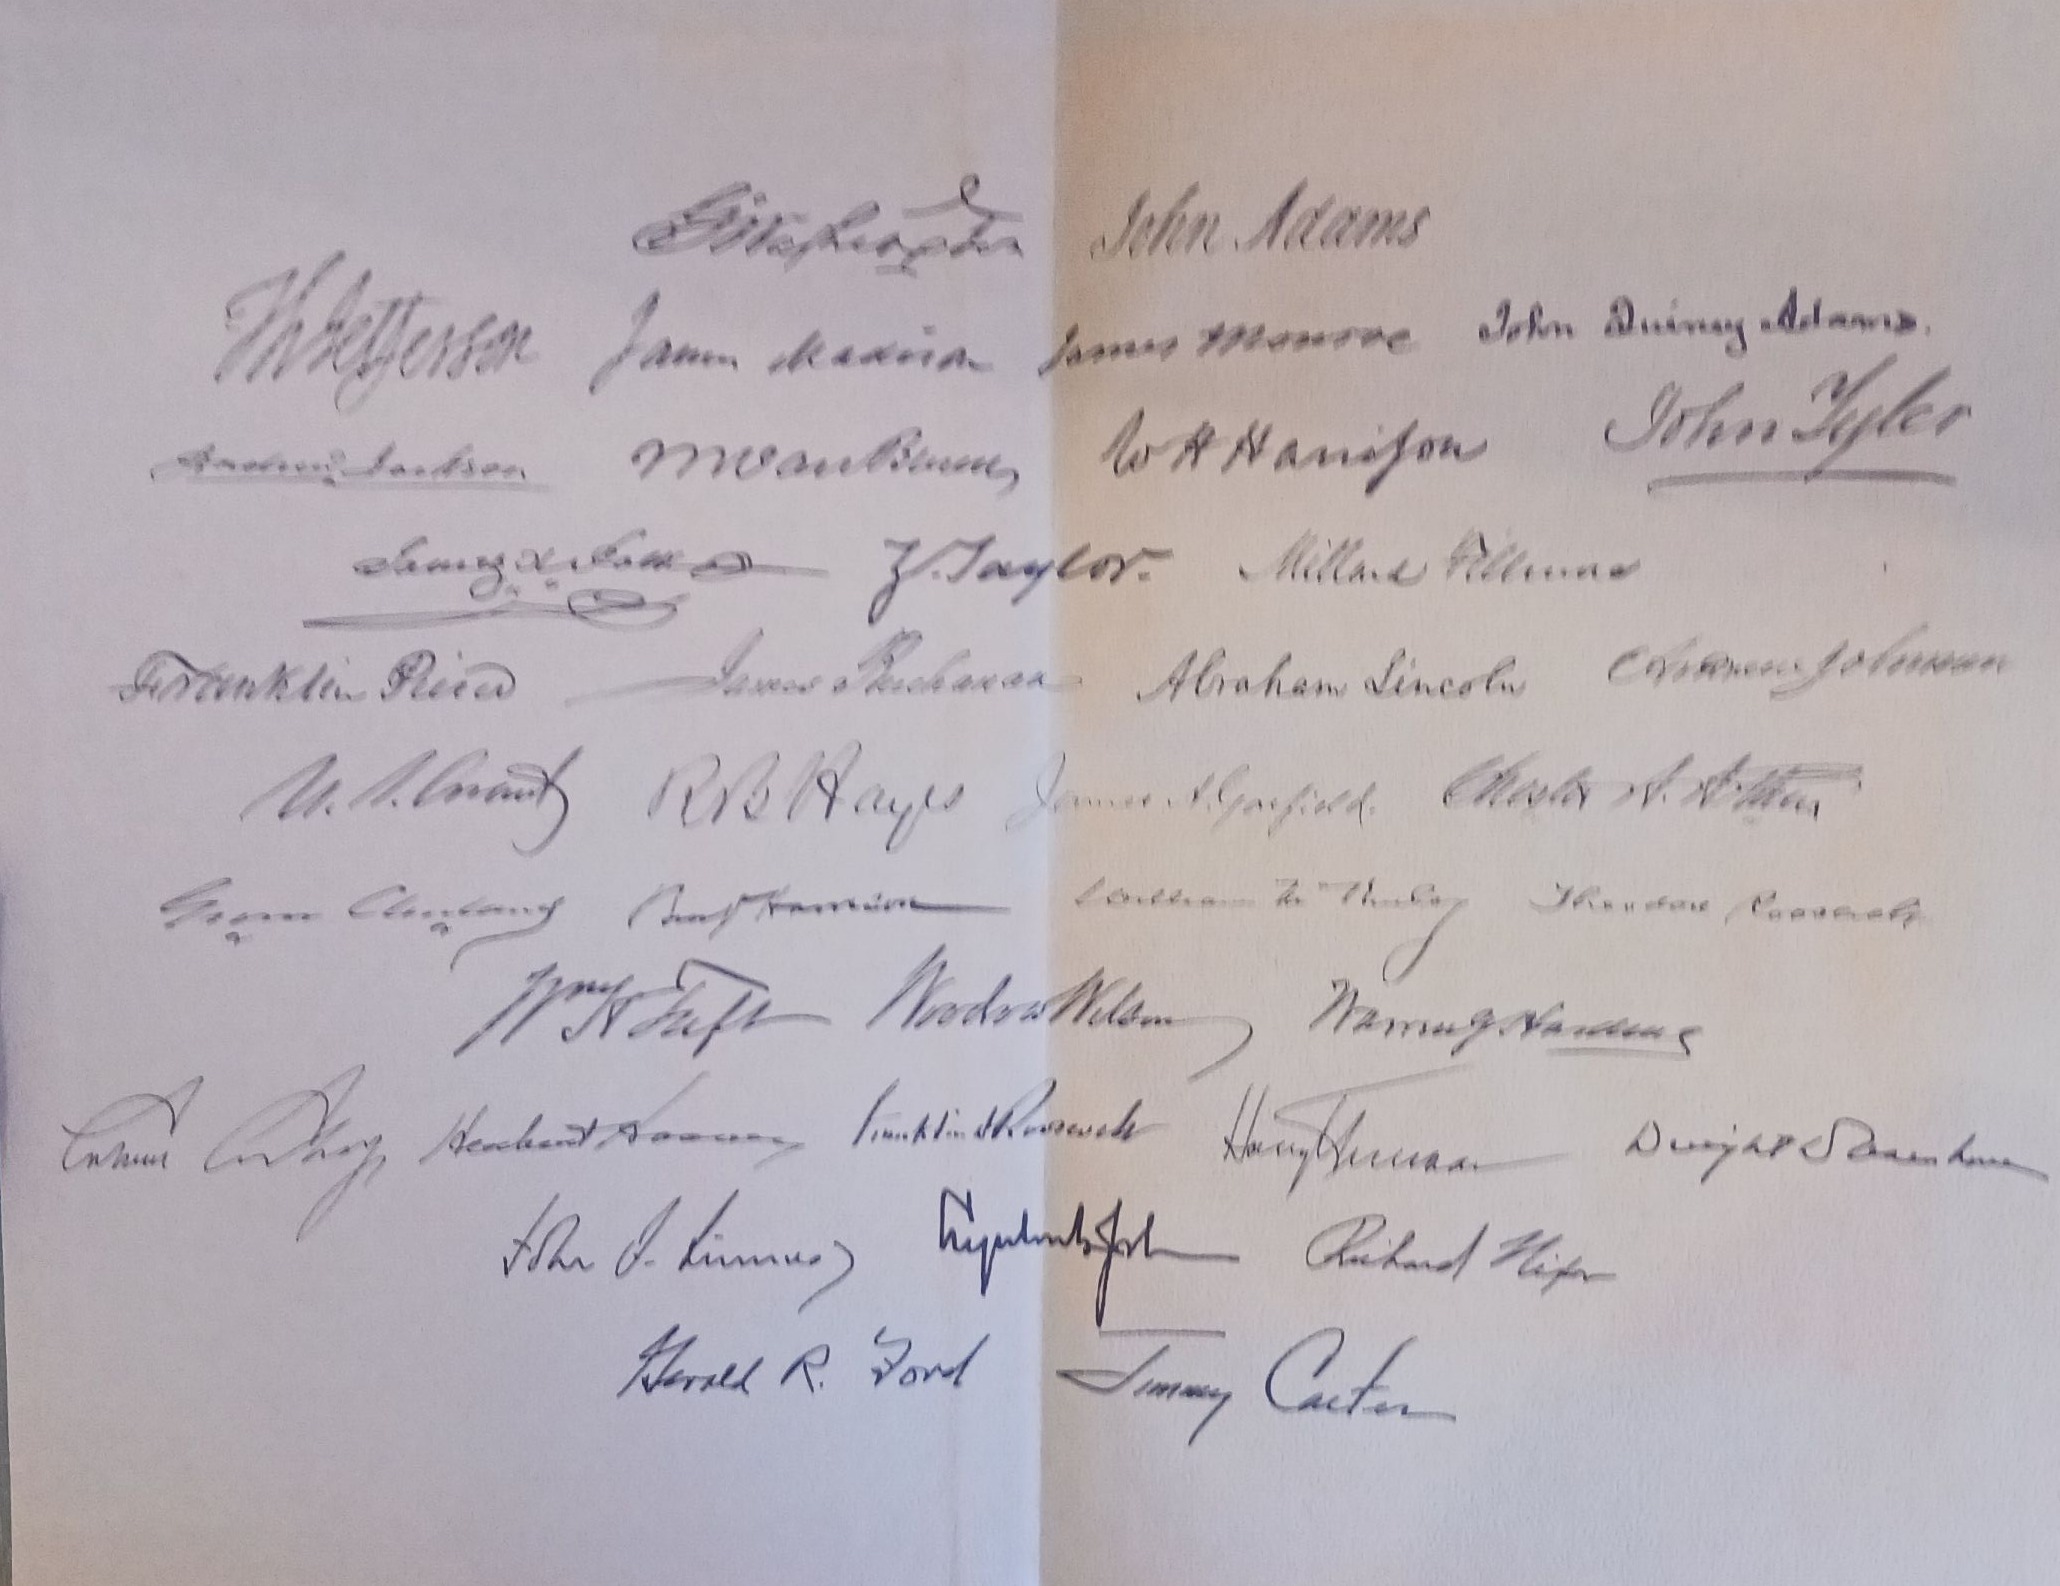 G Washington John Adams
Th Jefferson James Madison James Monroe John Quincy Adams.
Andrew Jackson M Van Buren W H Harrison John Tyler
James K. Polk Z. Taylor. Millard Fillmore
Franklin Pierce James Buchanan Abraham Lincoln Andrew Johnson
U. S. Grant R B Hayes James A. Garfield. Chester A. Arthur
Grover Cleveland Benj Harrison William McKinley Theodore Roosevelt
Wm H Taft Woodrow Wilson Warren G Harding
Calvin Coolidge Herbert Hoover Franklin D Roosevelt Harry Truman Dwight D Eisenhower
John F. Kennedy Lyndon B. Johnson Richard Nixon
Gerald R. Ford Jimmy Carter